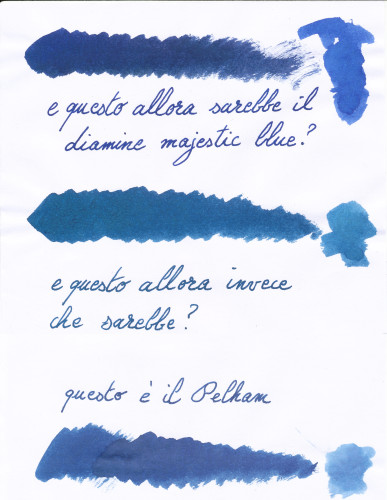 e questo allora sarebbe il
diamine majestic blue?
e questo allora invece
che sarebbe?
questo è il Pelham